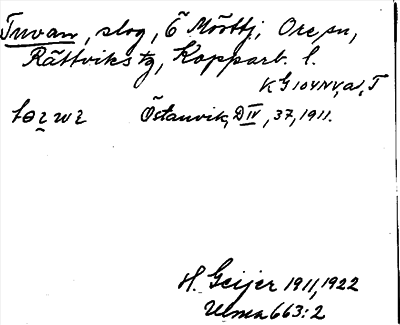 Tuvan, slog, Ö Mörttj, Ore sn,
Rättviks tg, Kopparb. l.
KG104NV,a,T
Östanvik, DIV, 37, 1911.
H. Geijer 1911, 1922
Ulma 663:2